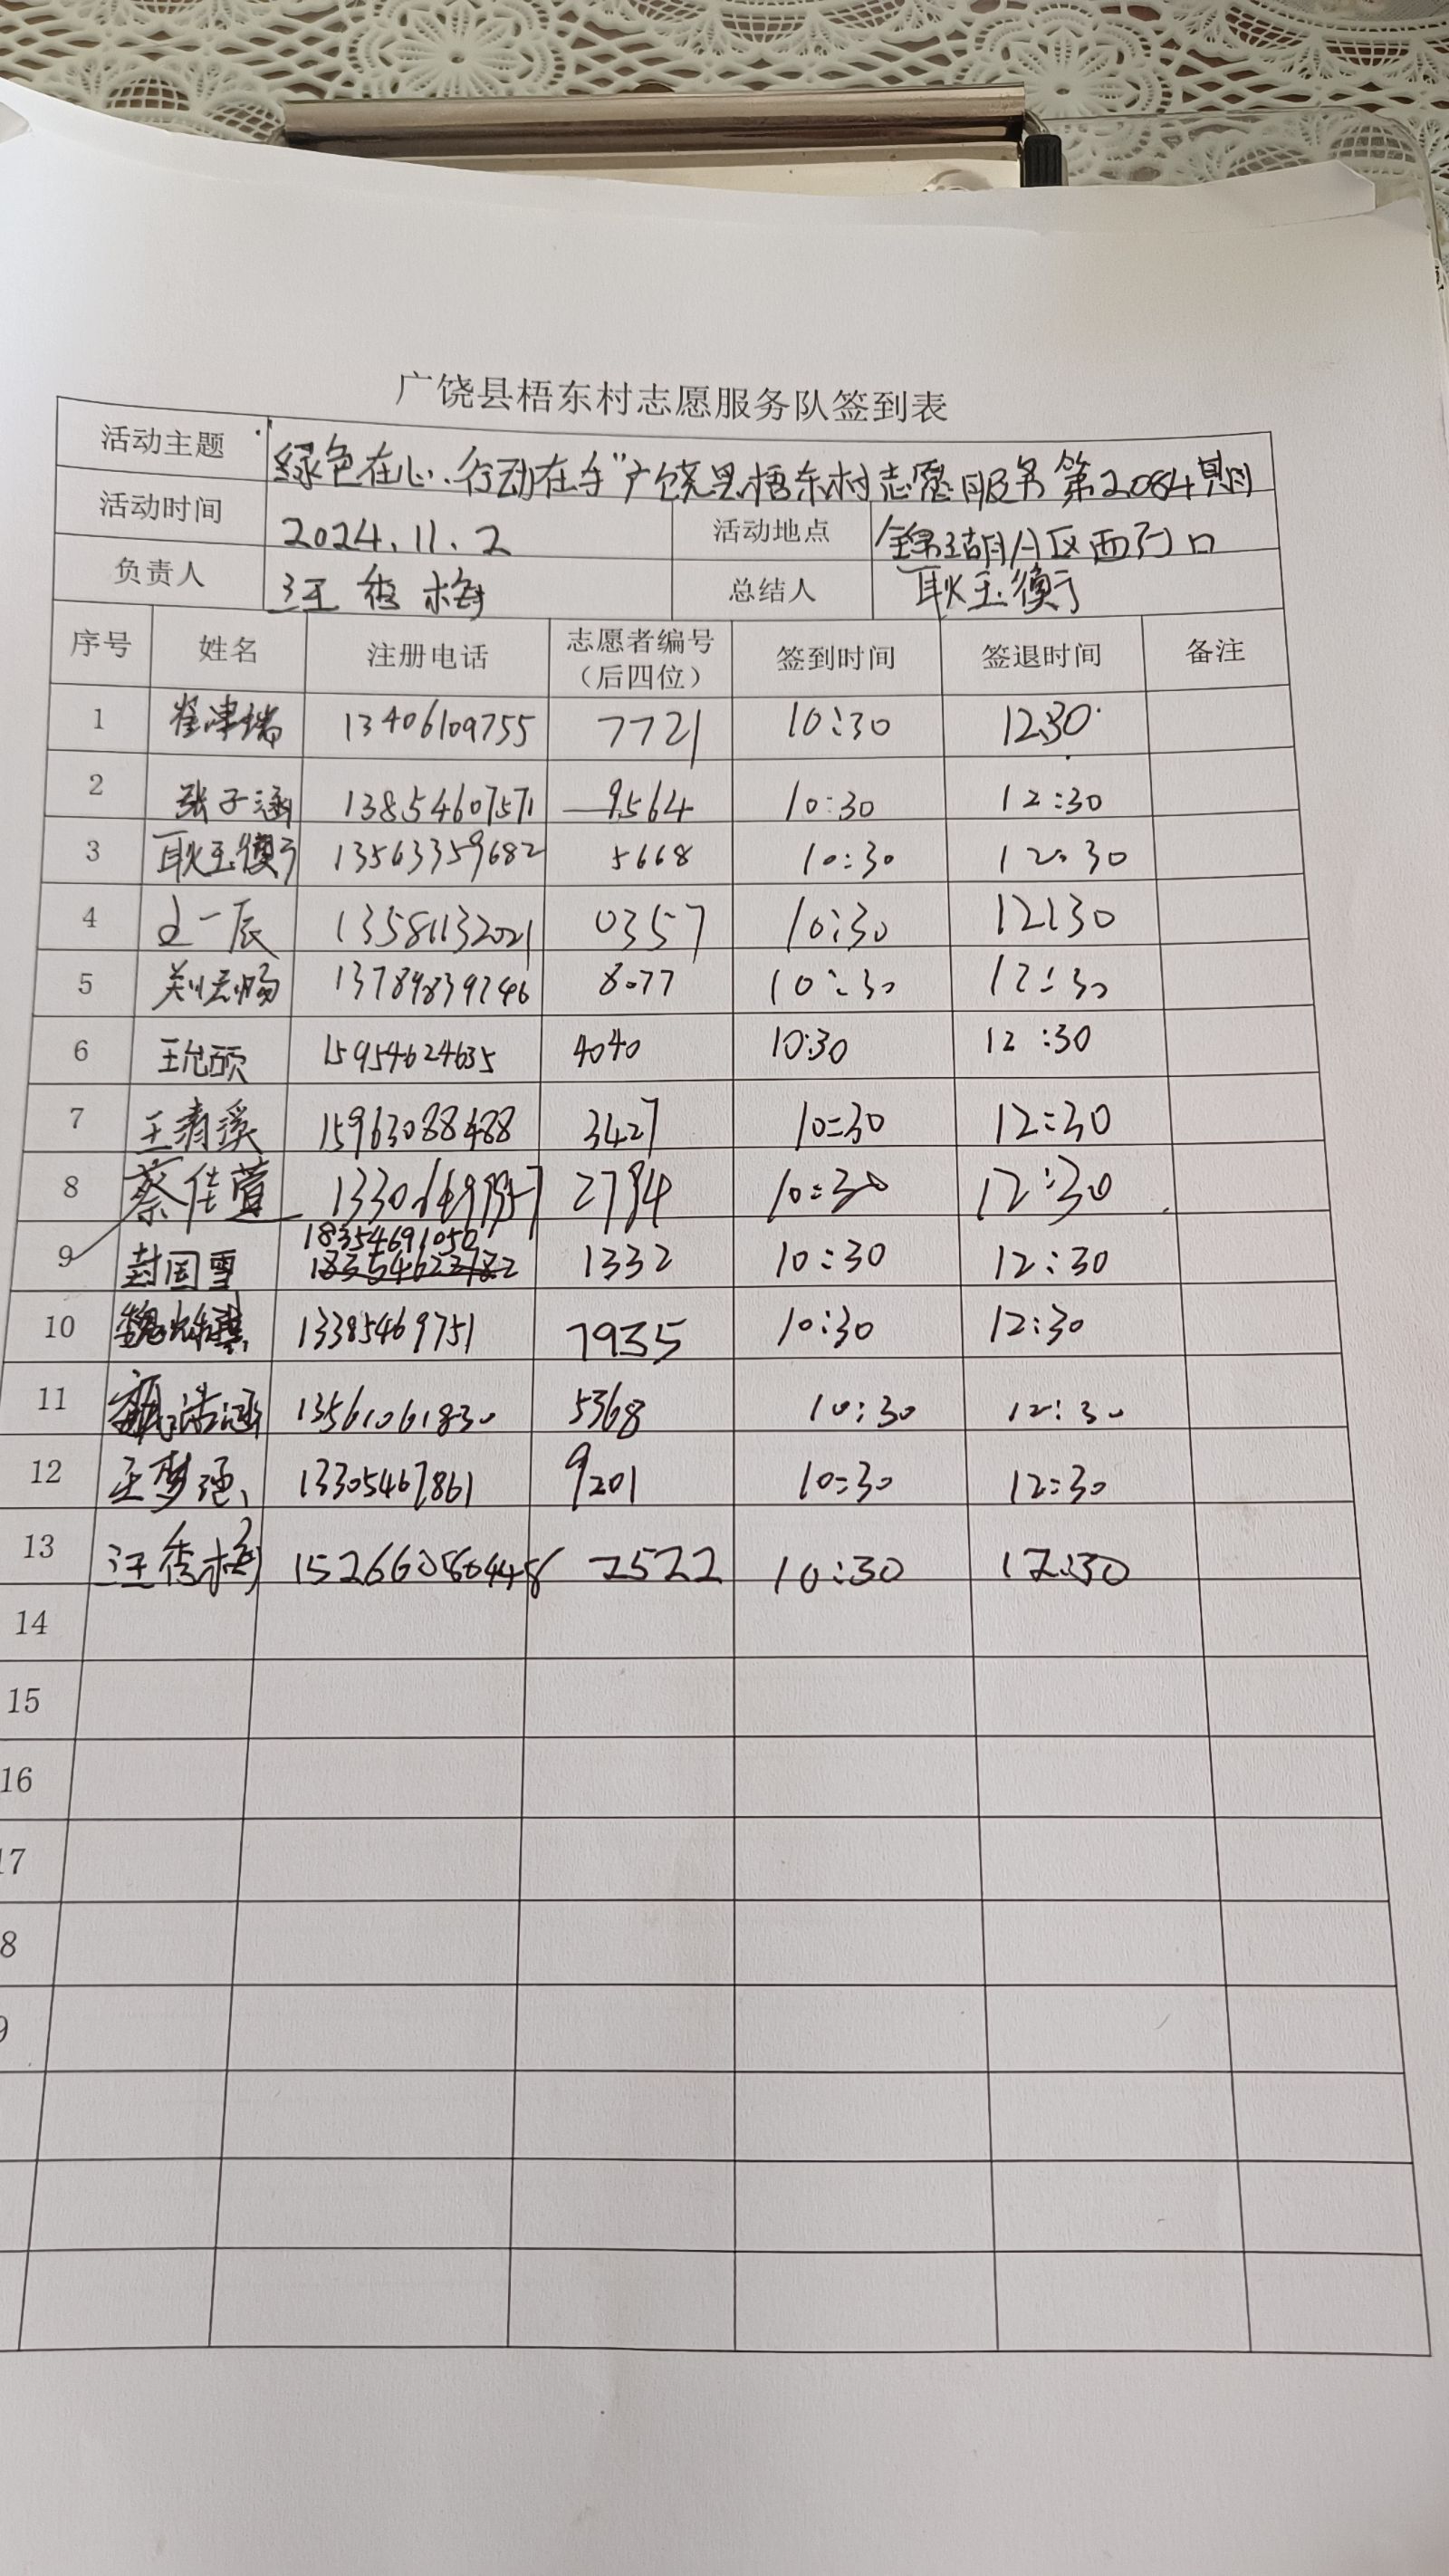 广饶县梧东村志愿服务队签到表
活动主题 "绿色在心、行动在手"广饶县梧东村志愿服务第2084期
活动时间 2024.11.2 活动地点 锦湖A区西门口
负责人 汪秀梅 总结人 耿玉衡
序号 姓名 注册电话 志愿者编号（后四位） 签到时间 签退时间 备注
1 13406109755 7721 10:30 12:30
2 张子涵 13854607571 9564 10:30 12:30
3 耿玉衡 13563359682 5668 10:30 12:30
4 一辰 13581132021 0357 10:30 12:30
5 8077 10:30 12:30
6 王允硕 15954624635 4040 10:30 12:30
7 王清溪 15963088488 3427 10:30 12:30
8 蔡佳萱 2794 10:30 12:30
9 封国雪 18354691050 1332 10:30 12:30
10 13385469751 7935 10:30 12:30
11 浩涵 13561061830 5368 10:30 12:30
12 王梦 13305467861 9201 10:30 12:30
13 汪秀梅 2522 10:30 12:30
14
15
16
17
8
9